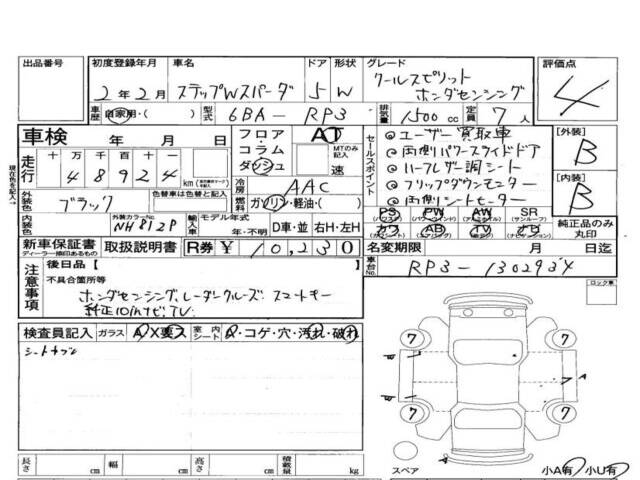 出品番号 初度登録年月 車名 ドア 形状 グレード 評価点
2年2月 ステップWスパーダ 5 W クールスピリット ホンダセンシング 4
車歴 自家用・( ) 型式 6BA - RP3 排気量 1500 cc 定員 7人
車検 年 月 日 フロア コラム ダッシュ AT MTのみ記入 速
走行 十万千百十 48924 km
セールスポイント
ユーザー買取車
両側パワースライドドア
ハーフレザー調シート
フリップダウンモニター
両側シートヒーター
[外装] B
[内装] B
現在色を記入
外装色 ブラック 色替車は色替と記入
冷房 AAC
燃料 ガソリン・軽油・( )
PS PW AW SR
(パワステ) (パワーウインド) (アルミホイル) (サンルーフ)
カワ AB TV ナビ
(エアバッグ) (テレビ) (ナビゲーション)
純正品のみ丸印
内装色 外装カラーNo. NH812P 輸入車 モデル年式 年・不明 D車・並 右H・左H
新車保証書 取扱説明書 R券 ¥ 10,230 名変期限 月 日迄
ディーラー捺印あるもの
注意事項 後日品【 】 車台No. RP3-1302934
不具合箇所等 ロック車
ホンダセンシング、レーダークルーズ スマートキー
純正10inナビ、TV
検査員記入 ガラス A/X要ス 室内シート A・コゲ・穴・汚れ・破れ
シートキズ小
7 7
7 7
W W A A
長さ cm 幅 cm 高さ cm 積載量 kg
スペア 小A有 小U有